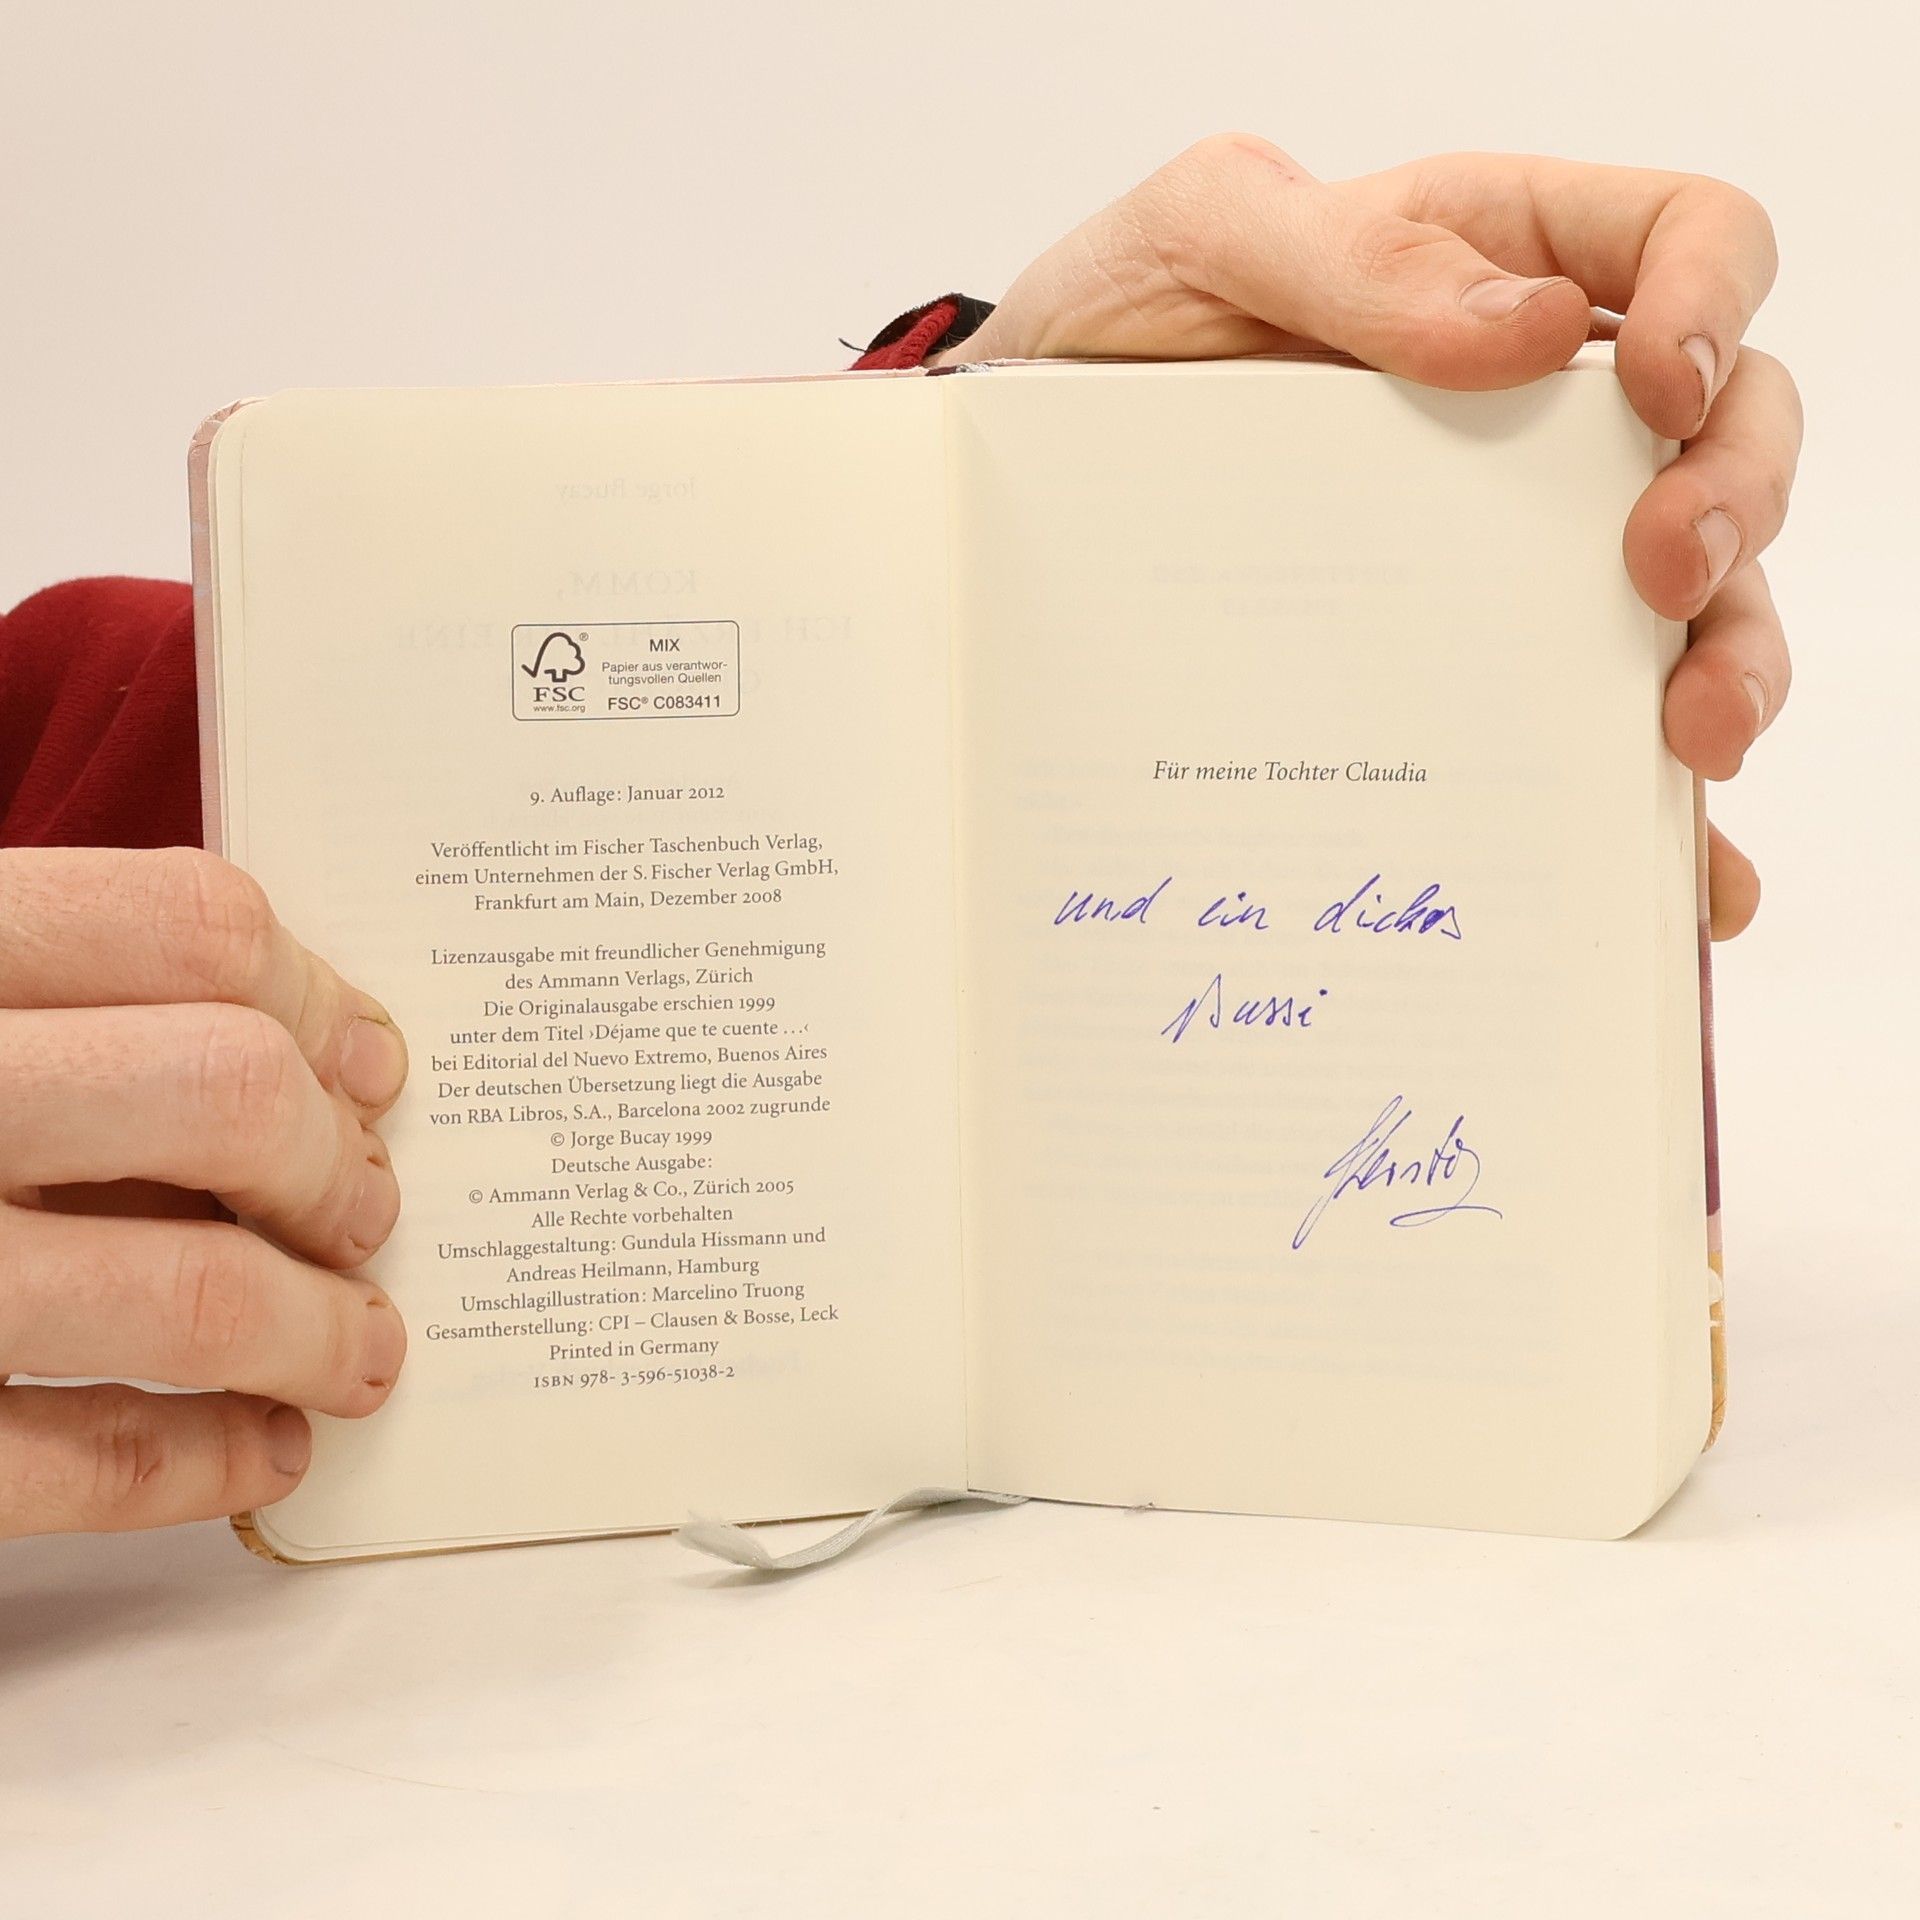 MIX
Papier aus verantwor-
tungsvollen Quellen
FSC® C083411
FSC
www.fsc.org
9. Auflage: Januar 2012
Veröffentlicht im Fischer Taschenbuch Verlag,
einem Unternehmen der S. Fischer Verlag GmbH,
Frankfurt am Main, Dezember 2008
Lizenzausgabe mit freundlicher Genehmigung
des Ammann Verlags, Zürich
Die Originalausgabe erschien 1999
unter dem Titel ›Déjame que te cuente …‹
bei Editorial del Nuevo Extremo, Buenos Aires
Der deutschen Übersetzung liegt die Ausgabe
von RBA Libros, S.A., Barcelona 2002 zugrunde
© Jorge Bucay 1999
Deutsche Ausgabe:
© Ammann Verlag & Co., Zürich 2005
Alle Rechte vorbehalten
Umschlaggestaltung: Gundula Hissmann und
Andreas Heilmann, Hamburg
Umschlagillustration: Marcelino Truong
Gesamtherstellung: CPI – Clausen & Bosse, Leck
Printed in Germany
ISBN 978- 3-596-51038-2
Für meine Tochter Claudia
und ein dickes
Bussi